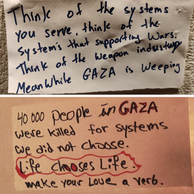 Think of the systems
you serve, think of the
systems that supporting wars.
Think of the weapon industry
MeanWhile GAZA is Weeping
40 000 People in GAZA
were killed for systems
we did not choose.
Life chooses Life
make your love a verb.